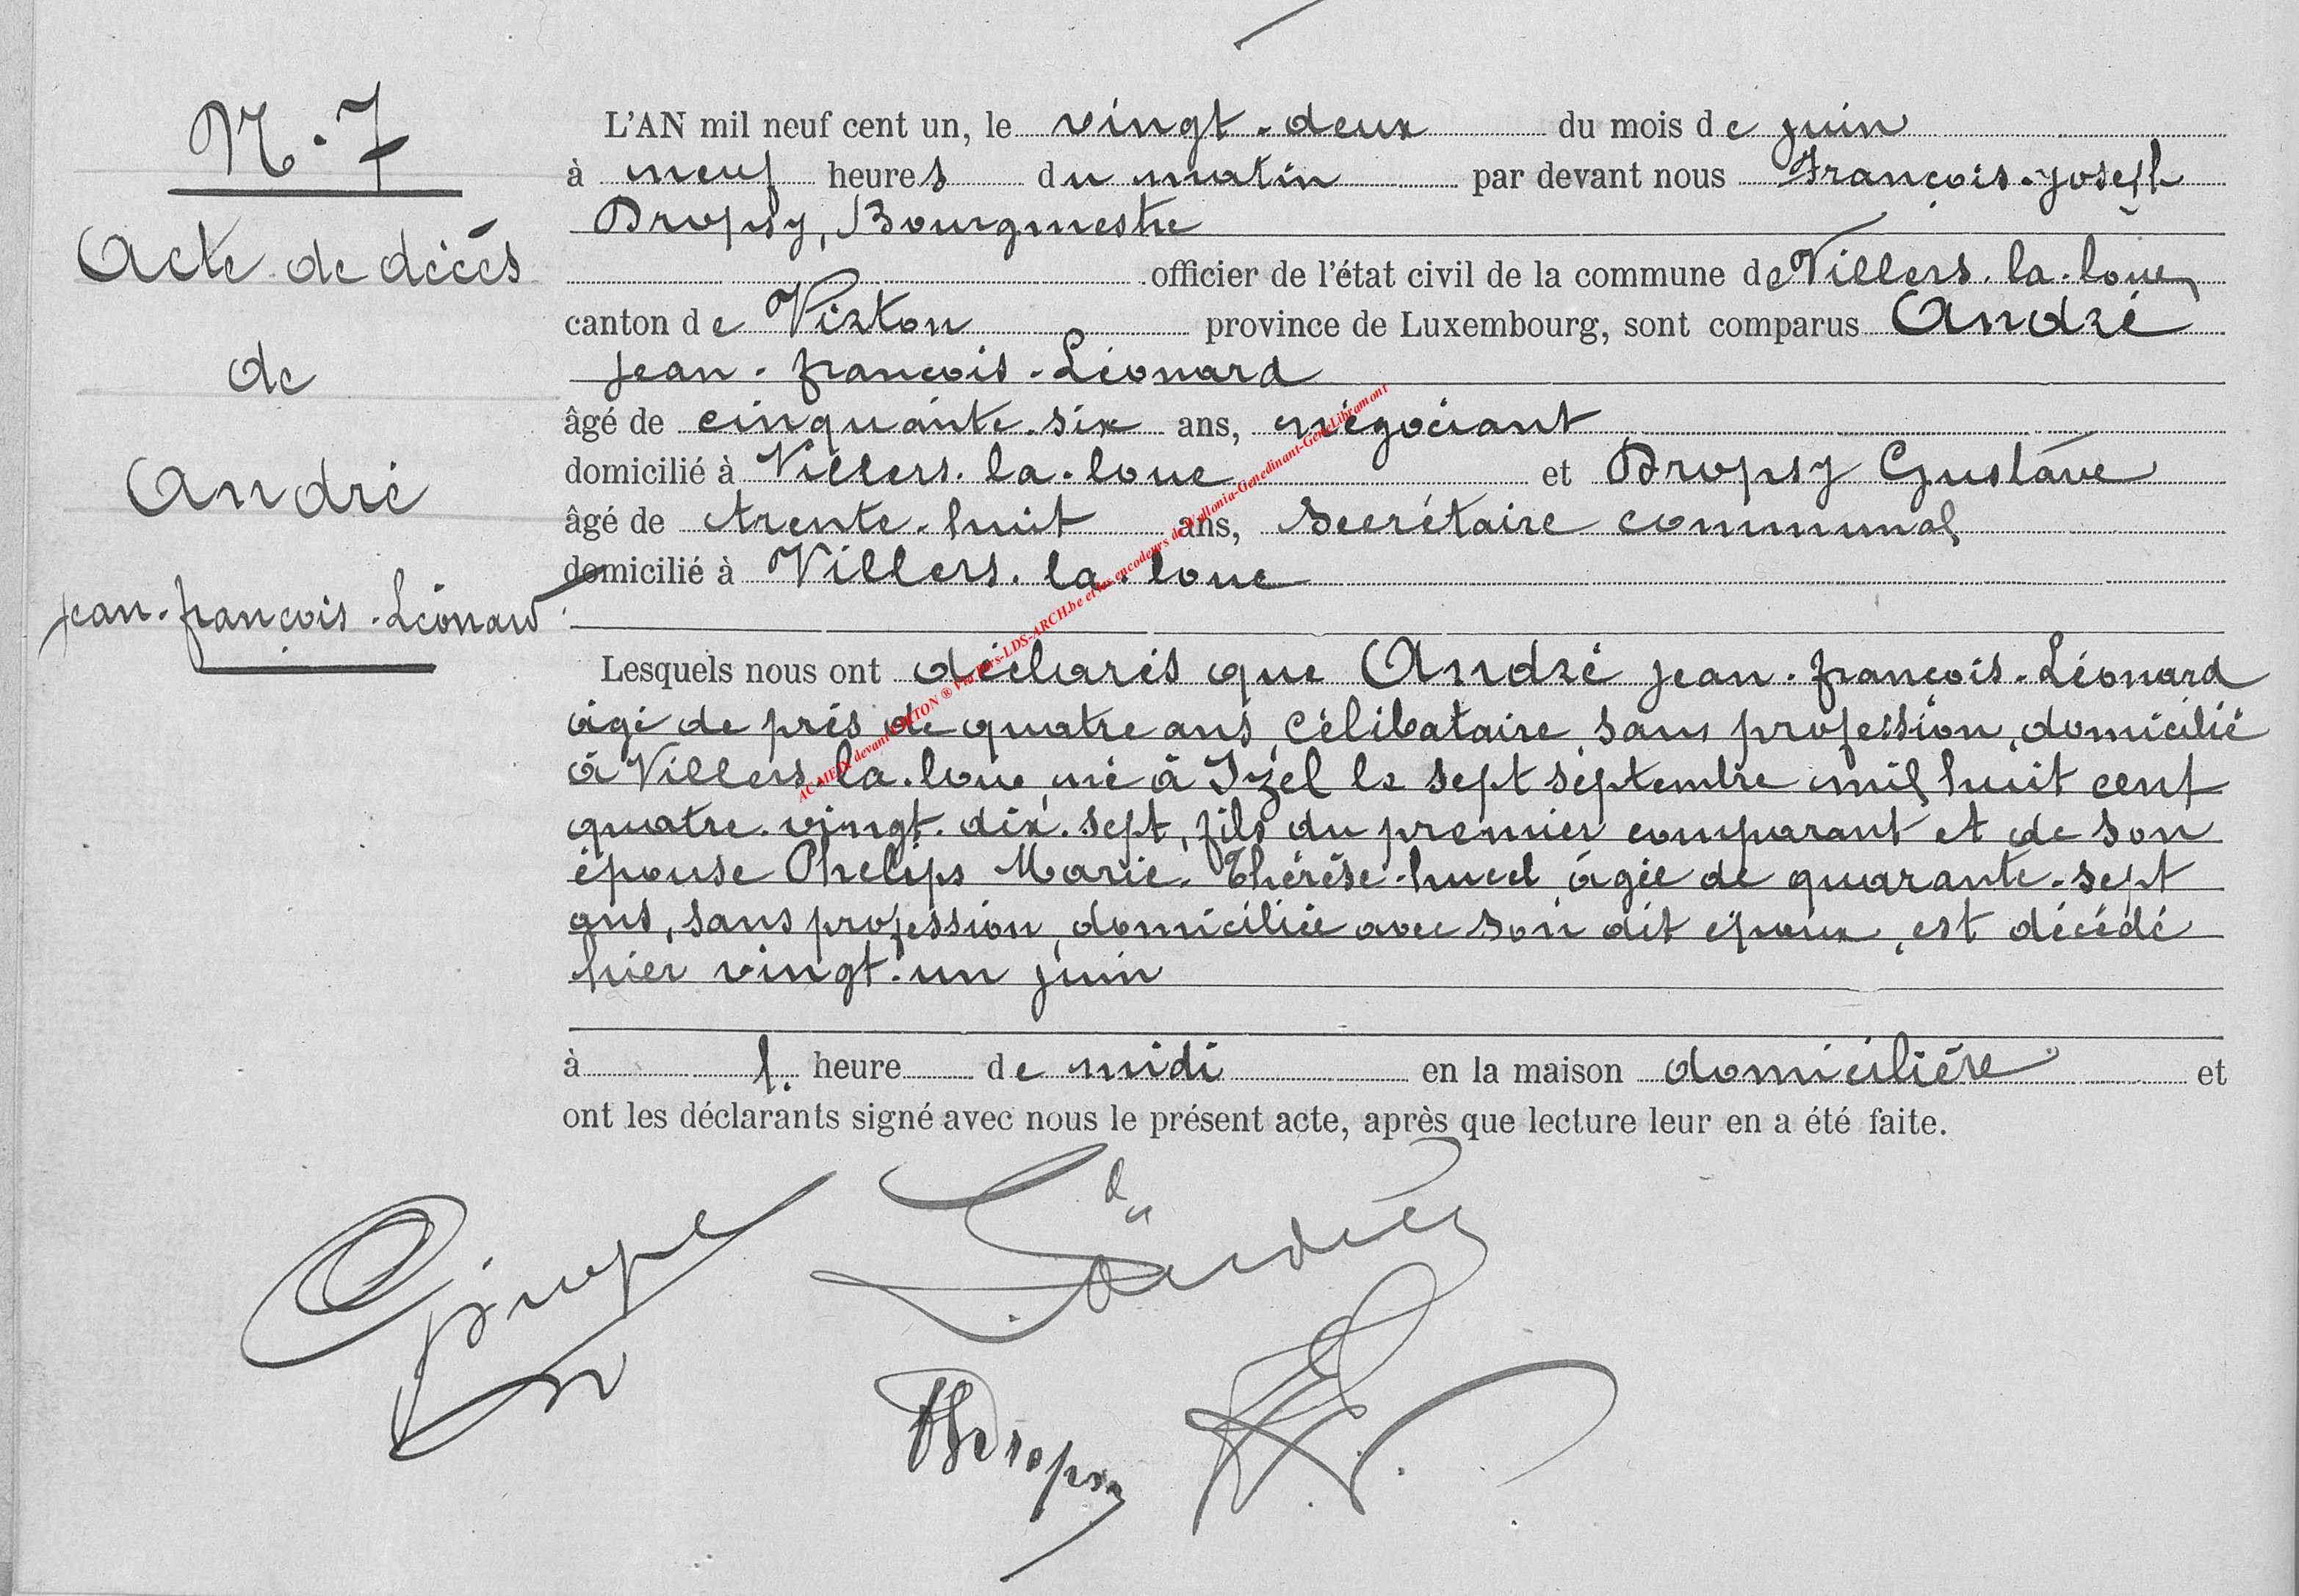 N. 7
Acte de décès
de
André
Jean-françois-Léonard
L'AN mil neuf cent un, le vingt-deux du mois de juin
à neuf heures du matin par devant nous François-Joseph
Dropsy, Bourgmestre
officier de l'état civil de la commune de Villers-la-loue,
canton de Virton province de Luxembourg, sont comparus André
Jean-françois-Léonard
âgé de cinquante-six ans, négociant
domicilié à Villers-la-loue et Dropsy Gustave
âgé de trente-huit ans, Secrétaire communal
domicilié à Villers-la-loue
Lesquels nous ont déclarés que André Jean-françois-Léonard
âgé de près de quatre ans, célibataire, sans profession, domicilié
à Villers-la-loue, né à Izel le sept septembre mil huit cent
quatre-vingt-dix-sept, fils du premier comparant et de son
épouse Phelips Marie-Thérèse-huel âgée de quarante-sept
ans, sans profession, domiciliée avec son dit époux, est décédé
hier vingt-un juin
à 1. heure de midi en la maison domicilière et
ont les déclarants signé avec nous le présent acte, après que lecture leur en a été faite.
André
Dropsy